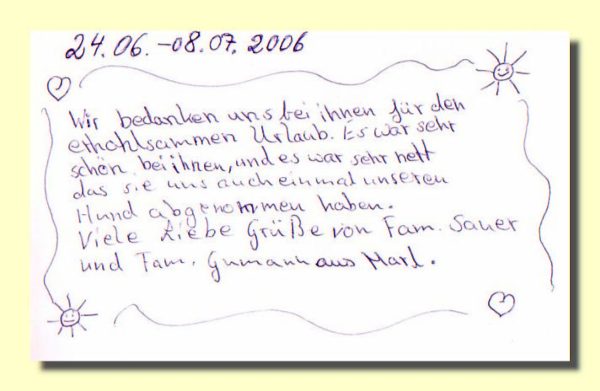 24.06.-08.07.2006
Wir bedanken uns bei ihnen für den
erhohlsammen Urlaub. Es war sehr
schön bei ihnen, und es war sehr nett
das sie uns auch einmal unseren
Hund abgenommen haben.
Viele Liebe Grüße von Fam. Sauer
und Fam. aus Marl.